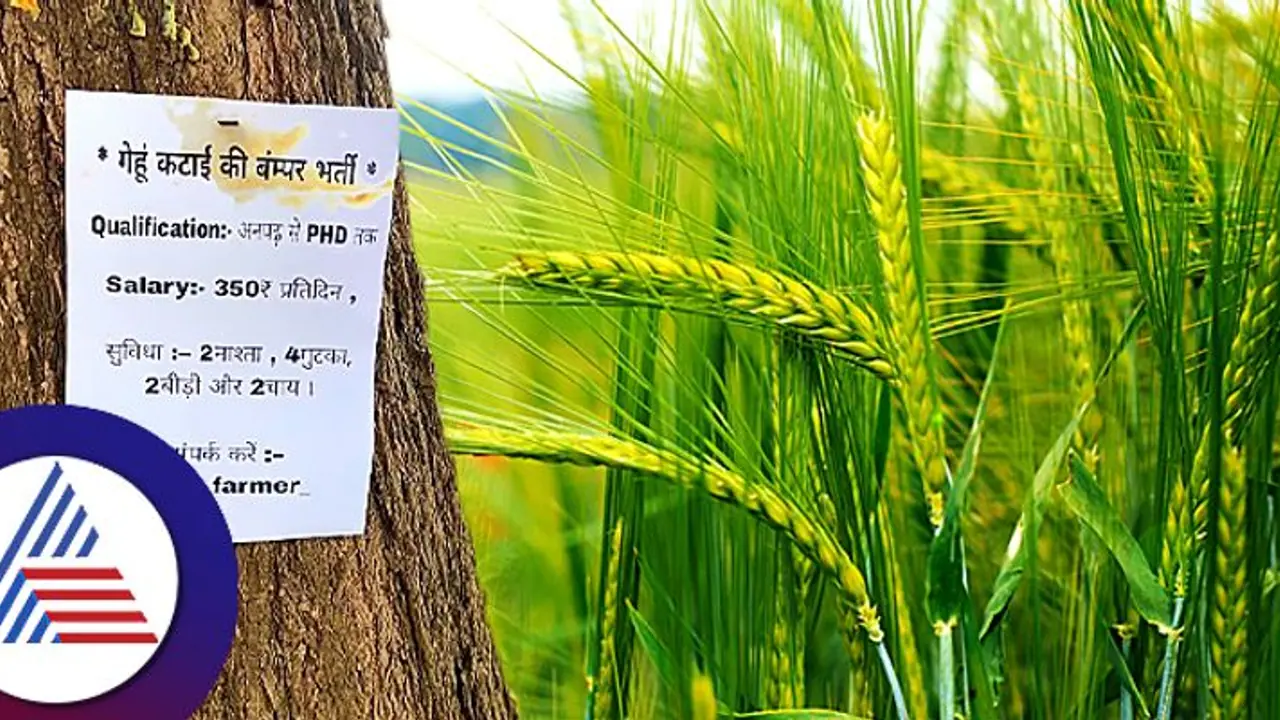 * गेहूं कटाई की बंम्पर भर्ती *
Qualification:- अनपढ़ से PHD तक
Salary:- 350₹ प्रतिदिन ,
सुविधा :– 2नाश्ता , 4गुटका,
2बीड़ी और 2चाय ।
करें :–
farmer_